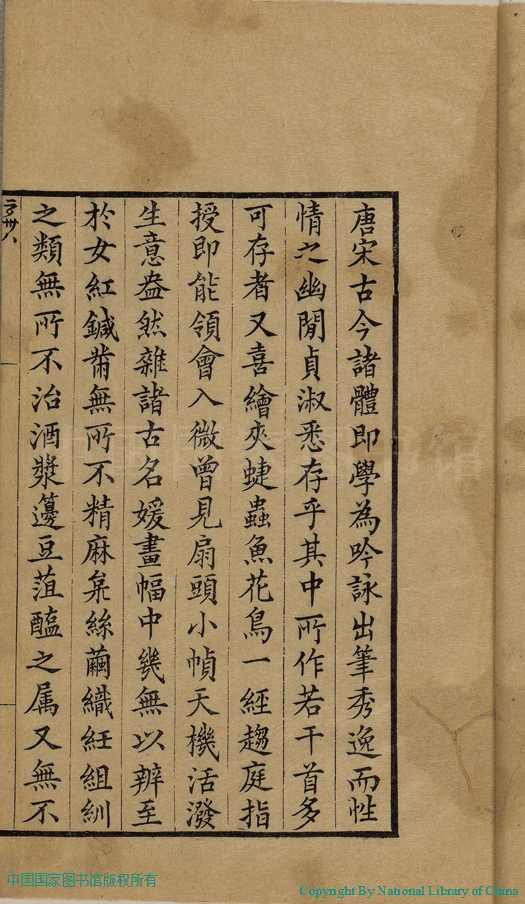 唐宋古今諸體即學為吟詠出筆秀逸而性
情之幽閒貞淑悉存乎其中所作若干首多
可存者又喜繪夾蜨蟲魚花鳥一經趨庭指
授即能領會入微曾見扇頭小幀天機活潑
生意盎然雜諸古名媛畫幅中幾無以辨至
於女紅鍼黹無所不精麻枲絲繭織紝組紃
之類無所不治酒漿籩豆菹醢之属又無不
中国国家图书馆版权所有
Copyright By National Library of China